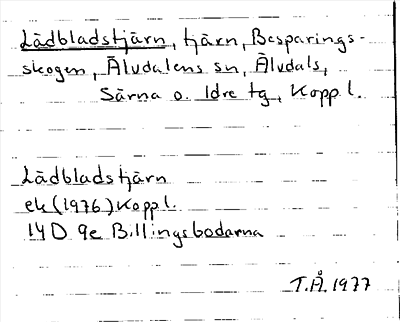 Lådbladstjärn, tjärn, Besparings-
skogen, Älvdalens sn, Älvdals,
Särna o. Idre tg, Kopp l.
Lådbladstjärn
ek (1976) Kopp l.
14D 9e Billingsbodarna
T.Å. 1977